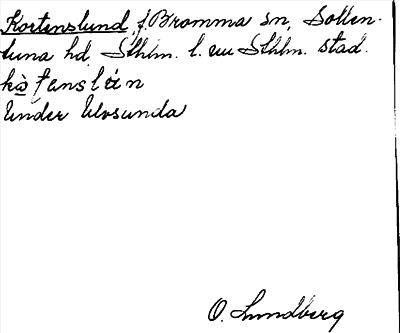 Kortenslund, f. Bromma sn, Sollen-
tuna hd, Sthlm. l. nu Sthlm. stad.
Under Ulvsunda
O. Lundberg